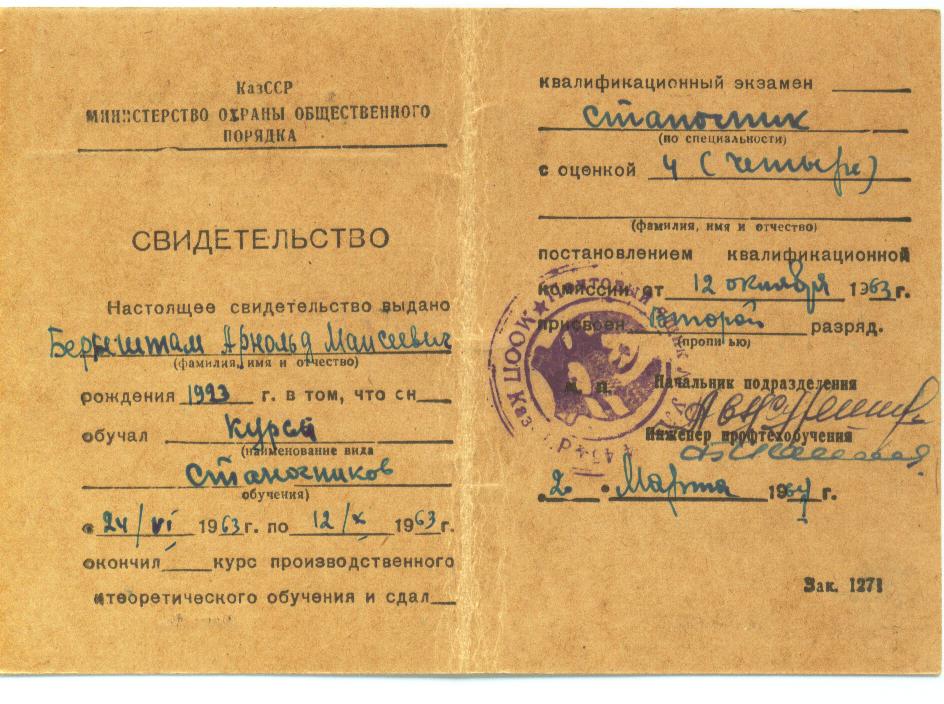 КазССР
МИНИСТЕРСТВО ОХРАНЫ ОБЩЕСТВЕННОГО
ПОРЯДКА
СВИДЕТЕЛЬСТВО
Настоящее свидетельство выдано
Бернштам Арнольд Маисеевич
(фамилия, имя и отчество)
рождения 1923 г. в том, что он
обучал курсы
(наименование вида
станочников
обучения)
с 24/VI 1963 г. по 12/X 1963 г.
окончил курс производственного
и теоретического обучения и сдал
квалификационный экзамен
станочник
(по специальности)
с оценкой 4 (четыре)
(фамилия, имя и отчество)
постановлением квалификационной
комиссии от 12 октября 1963 г.
присвоен второй разряд.
(прописью)
м. п.
МООП Каз.
Почтовый
Начальник подразделения
Инженер профтехобучения
2 Марта 1967 г.
Зак. 1271